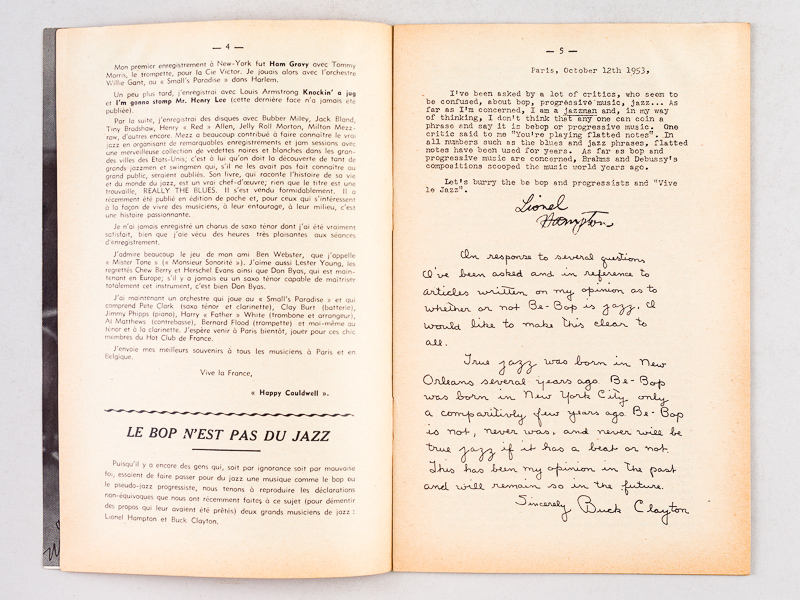 — 4 —
Mon premier enregistrement à New-York fut Ham Gravy avec Tommy
Morris, le trompette, pour la Cie Victor. Je jouais alors avec l'orchestre
Willie Gant, au « Small's Paradise » dans Harlem.
Un peu plus tard, j'enregistrai avec Louis Armstrong Knockin' a jug
et I'm gonna stomp Mr. Henry Lee (cette dernière face n'a jamais été
publiée).
Par la suite, j'enregistrai des disques avec Bubber Miley, Jack Bland,
Tiny Bradshaw, Henry « Red » Allen, Jelly Roll Morton, Milton Mezz-
row, d'autres encore. Mezz a beaucoup contribué à faire connaître le vrai
jazz en organisant de remarquables enregistrements et jam sessions avec
une merveilleuse collection de vedettes noires et blanches dans les gran-
des villes des Etats-Unis; c'est à lui qu'on doit la découverte de tant de
grands jazzmen et swingmen qui, s'il ne les avait pas fait connaître au
grand public, seraient oubliés. Son livre, qui raconte l'histoire de sa vie
et du monde du jazz, est un vrai chef-d'œuvre; rien que le titre est une
trouvaille, REALLY THE BLUES. Il s'est vendu formidablement. Il a
récemment été publié en édition de poche et, pour ceux qui s'intéressent
à la façon de vivre des musiciens, à leur entourage, à leur milieu, c'est
une histoire passionnante.
Je n'ai jamais enregistré un chorus de saxo ténor dont j'ai été vraiment
satisfait, bien que j'aie vécu des heures très plaisantes aux séances
d'enregistrement.
J'admire beaucoup le jeu de mon ami Ben Webster, que j'appelle
« Mister Tone » (« Monsieur Sonorité »). J'aime aussi Lester Young, les
regrettés Chew Berry et Herschel Evans ainsi que Don Byas, qui est main-
tenant en Europe; s'il y a jamais eu un saxo ténor capable de maîtriser
totalement cet instrument, c'est bien Don Byas.
J'ai maintenant un orchestre qui joue au « Small's Paradise » et qui
comprend Pete Clark (saxo ténor et clarinette), Clay Burt (batterie),
Jimmy Phipps (piano), Harry « Father » White (trombone et arrangeur),
Al Matthews (contrebasse), Bernard Flood (trompette) et moi-même au
ténor et à la clarinette. J'espère venir à Paris bientôt, jouer pour ces chic
membres du Hot Club de France.
J'envoie mes meilleurs souvenirs à tous les musiciens à Paris et en
Belgique.
Vive la France,
« Happy Cauldwell ».
LE BOP N'EST PAS DU JAZZ
Puisqu'il y a encore des gens qui, soit par ignorance soit par mauvaise
foi, essaient de faire passer pour du jazz une musique comme le bop ou
le pseudo-jazz progressiste, nous tenons à reproduire les déclarations
non-équivoques que nous ont récemment faites à ce sujet (pour démentir
des propos qui leur avaient été prêtés) deux grands musiciens de jazz :
Lionel Hampton et Buck Clayton.
— 5 —
Paris, October 12th 1953,
I've been asked by a lot of critics, who seem to
be confused, about bop, progressive music, jazz... As
far as I'm concerned, I am a jazzman and, in my way
of thinking, I don't think that any one can coin a
phrase and say it is bebop or progressive music. One
critic said to me "You're playing flatted notes". In
all numbers such as the blues and jazz phrases, flatted
notes have been used for years. As far as bop and
progressive music are concerned, Brahms and Debussy's
compositions scooped the music world years ago.
Let's burry the be bop and progressists and "Vive
le Jazz".
Lionel
Hampton
In response to several questions
I've been asked and in reference to
articles written on my opinion as to
whether or not Be-Bop is jazz. I
would like to make this clear to
all.
True jazz was born in New
Orleans several years ago. Be-Bop
was born in New York City only
a comparitivly few years ago. Be-Bop
is not, never was, and never will be
true jazz if it has a beat or not.
This has been my opinion in the past
and will remain so in the future.
Sincerely Buck Clayton